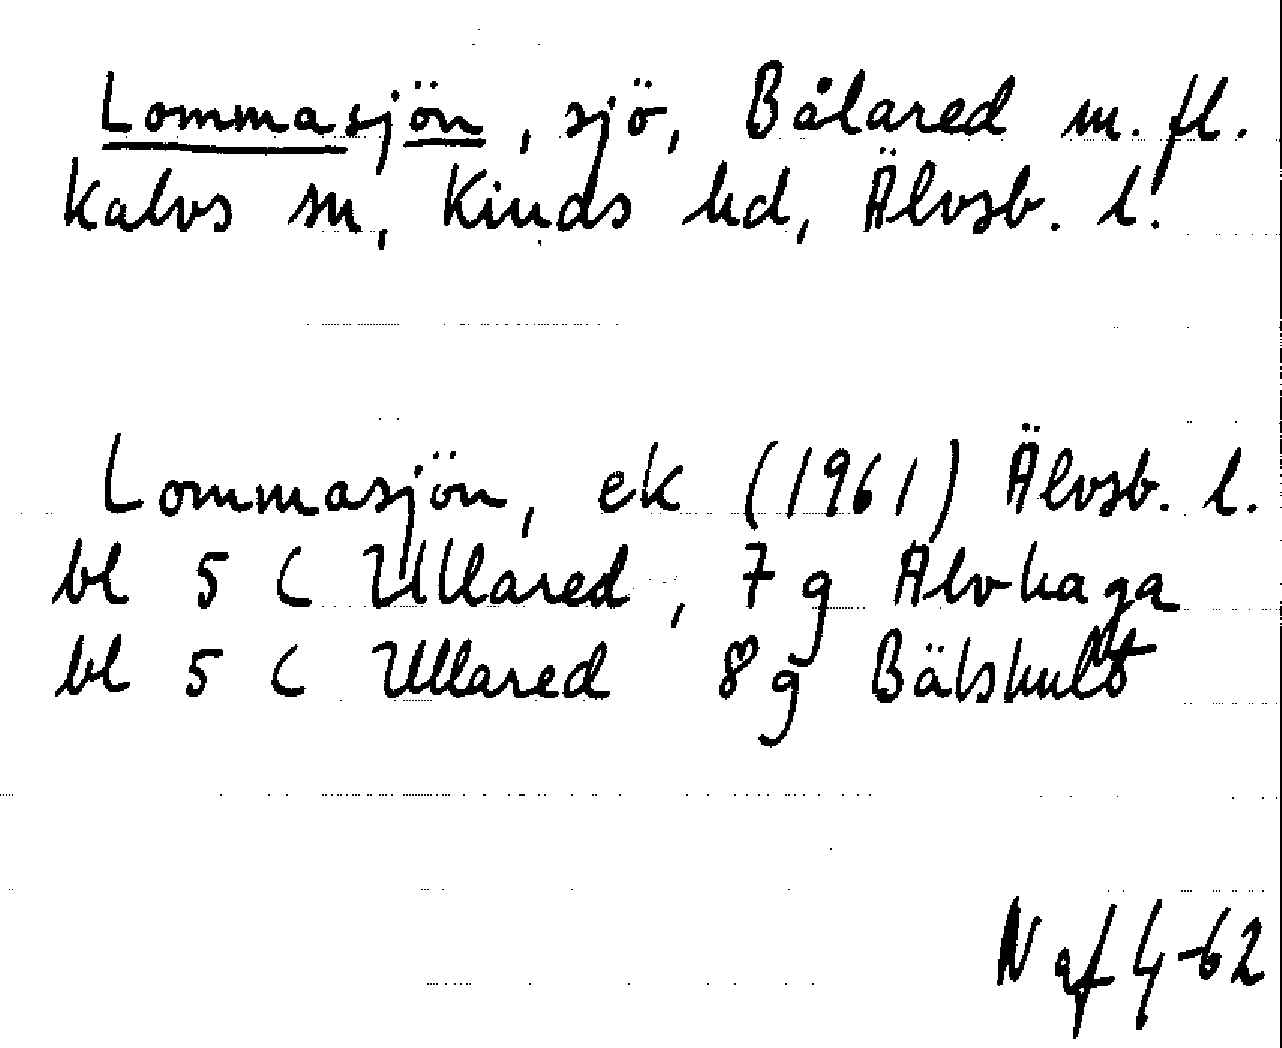 Lommasjön, sjö, Bålared m. fl.
Kalvs sn, Kinds hd, Älvsb. l.
Lommasjön, ek (1961) Älvsb. l.
bl 5 C Ullared, 7 g Älvhaga
bl 5 C Ullared 8 g Bälshult
N af 4-62